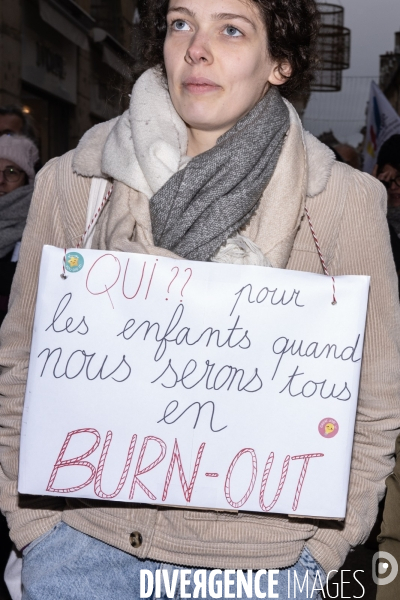 QUI?? pour
les enfants quand
nous serons tous
en
BURN-OUT
DIVERGENCE IMAGES